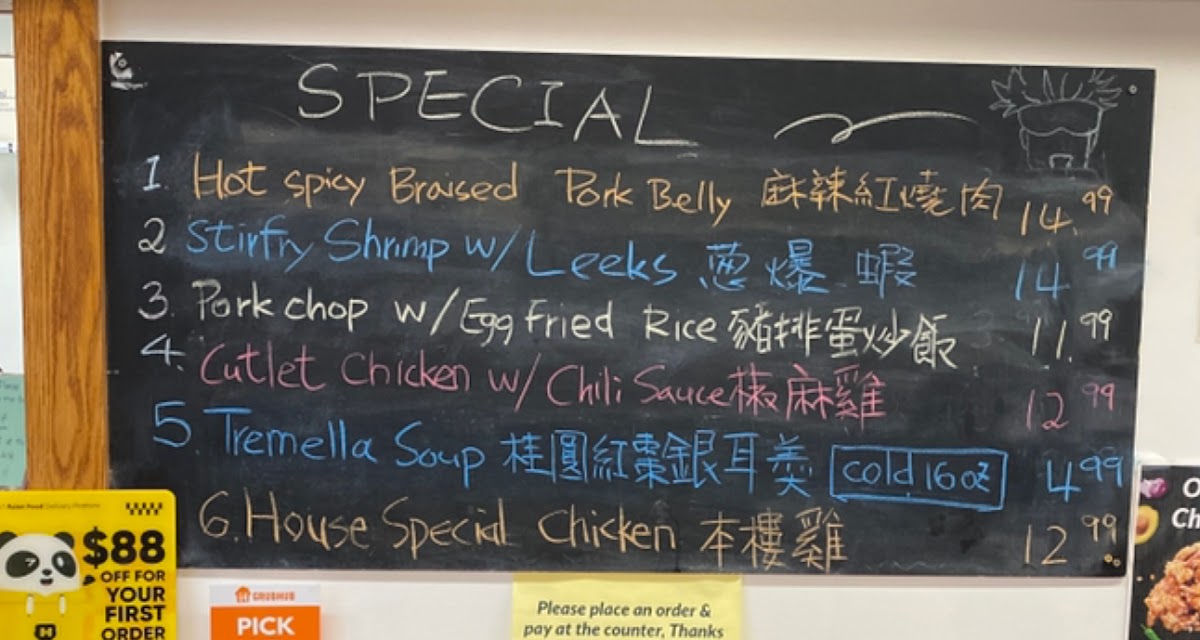 SPECIAL
1. Hot spicy Braised Pork Belly 麻辣紅燒肉 14.99
2 Stirfry Shrimp w/ Leeks 葱爆蝦 14.99
3. Pork chop w/ Egg Fried Rice 豬排蛋炒飯 11.99
4. Cutlet Chicken w/ Chili Sauce 椒麻雞 12.99
5 Tremella Soup 桂圓紅棗銀耳羹 cold 16oz 4.99
6. House Special Chicken 本樓雞 12.99
$88
OFF FOR
YOUR
FIRST
ORDER
GRUBHUB
PICK
Please place an order &
pay at the counter, Thanks